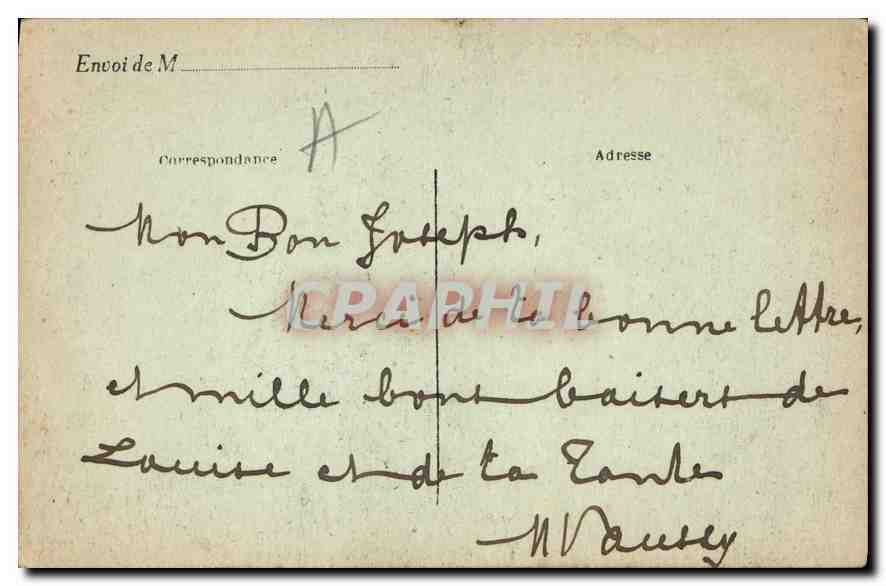 Envoi de M
A
Correspondance
Adresse
Mon Bon Joseph,
CPAPHIL
Merci de ta bonne lettre,
et mille bons baisers de
Louise et de ta Tante